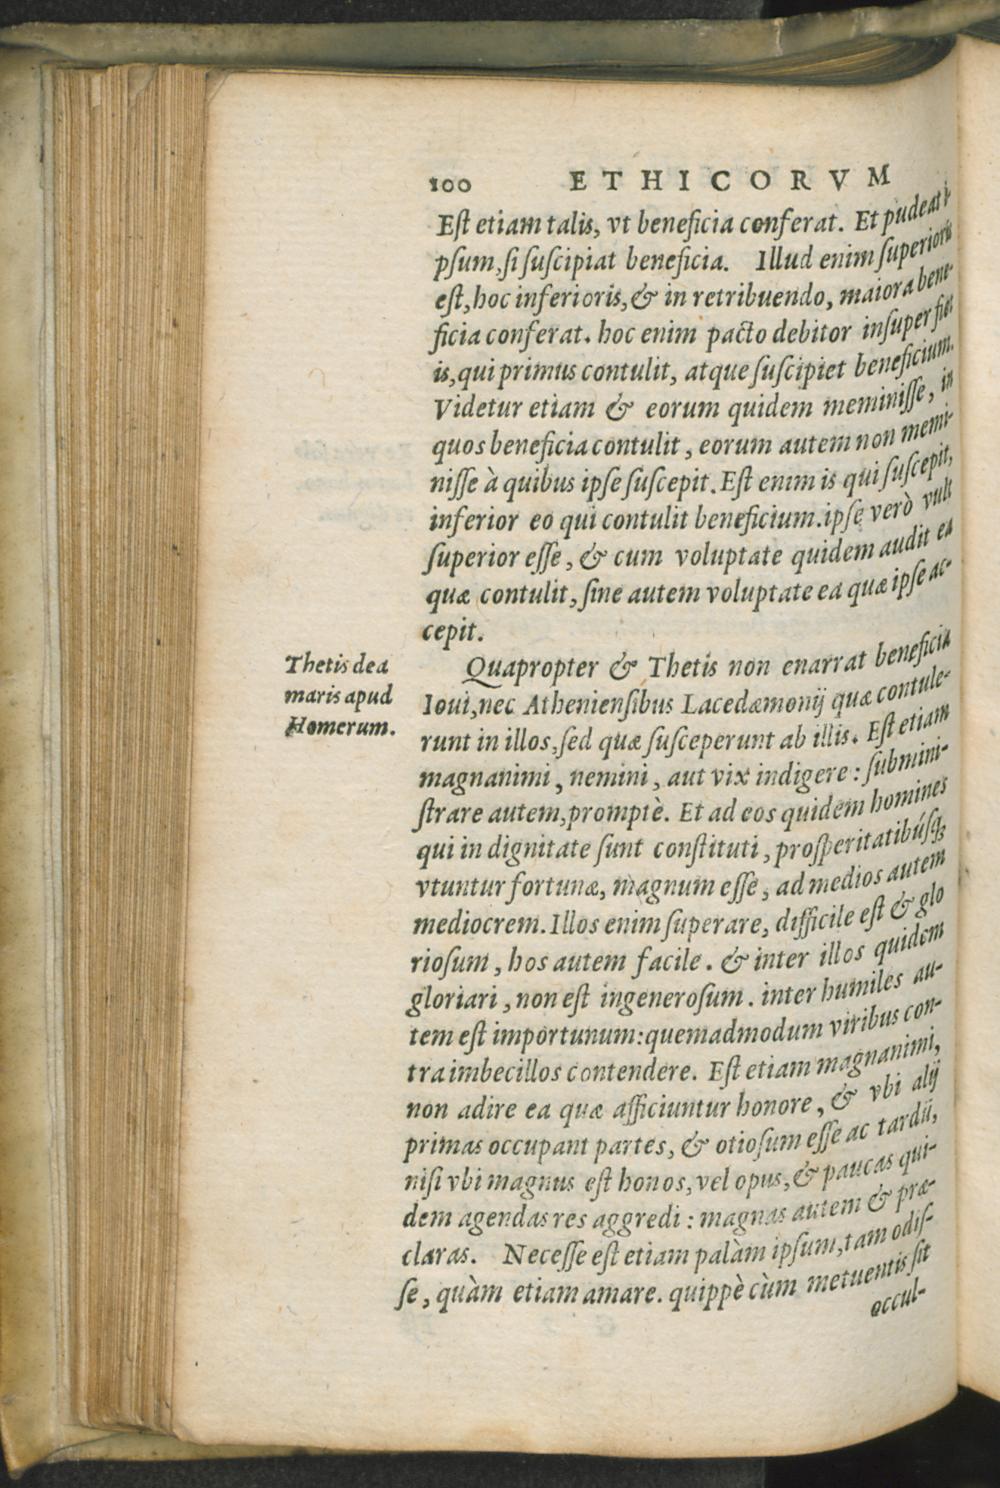 100 ETHICORVM
Est etiam talis, vt beneficia conferat. Et pudeat i-
psum, si suscipiat beneficia. Illud enim superioris
est, hoc inferioris, & in retribuendo, maiora bene-
ficia conferat. hoc enim pacto debitor insuper fiet
is, qui primus contulit, atque suscipiet beneficium.
Videtur etiam & eorum quidem meminisse, in
quos beneficia contulit, eorum autem non memi-
nisse à quibus ipse suscepit. Est enim is qui suscepit,
inferior eo qui contulit beneficium. ipse verò vult
superior esse, & cum voluptate quidem audit ea
quæ contulit, sine autem voluptate ea quæ ipse ac-
cepit.
Thetis dea
maris apud
Homerum.
Quapropter & Thetis non enarrat beneficia
Ioui, nec Atheniensibus Lacedæmonij quæ contule-
runt in illos, sed quæ susceperunt ab illis. Est etiam
magnanimi, nemini, aut vix indigere: submini-
strare autem, promptè. Et ad eos quidem homines
qui in dignitate sunt constituti, prosperitatibúsq;
vtuntur fortunæ, magnum esse, ad medios autem
mediocrem. Illos enim superare, difficile est & glo
riosum, hos autem facile. & inter illos quidem
gloriari, non est ingenerosum. inter humiles au-
tem est importunum: quemadmodum viribus con-
tra imbecillos contendere. Est etiam magnanimi,
non adire ea quæ afficiuntur honore, & vbi alij
primas occupant partes, & otiosum esse ac tardũ,
nisi vbi magnus est honos, vel opus, & paucas qui-
dem agendas res aggredi: magnas autem & præ-
claras. Necesse est etiam palàm ipsum, tam odis-
se, quàm etiam amare. quippè cùm metuentis sit
occul-